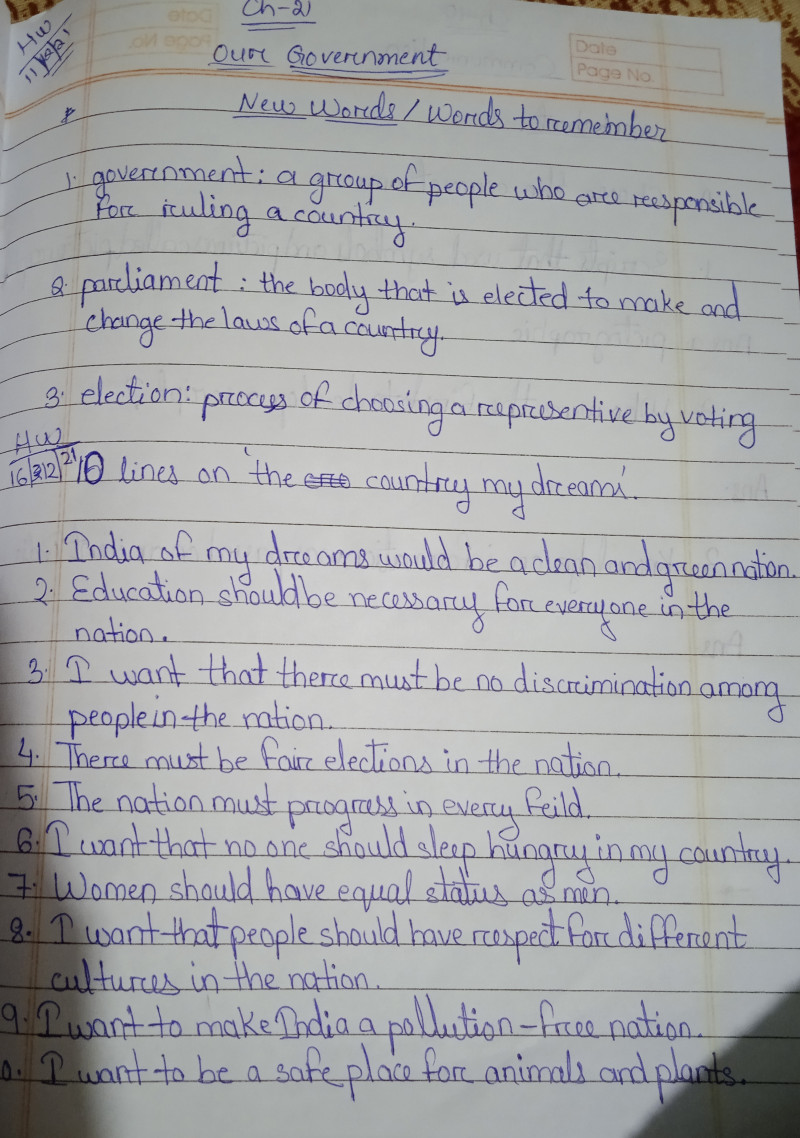 Ch-2
Our Government
HW
Date
Page No.
New Words / Words to remember
1. government: a group of people who are reesponsible
for ruling a country.
2. parliament : the body that is elected to make and
change the laws of a country.
3. election: process of choosing a representive by voting
HW
16/12/21
10 lines on 'the country my dream'.
1. India of my dreams would be a clean and green nation.
2. Education should be necessary for everyone in the
nation.
3. I want that there must be no discrimination among
people in the nation.
4. There must be fair elections in the nation.
5. The nation must progress in every feild.
6. I want that no one should sleep hungry in my country.
7. Women should have equal status as men.
8. I want that people should have respect for different
cultures in the nation.
9. I want to make India a pollution-free nation.
0. I want to be a safe place for animals and plants.